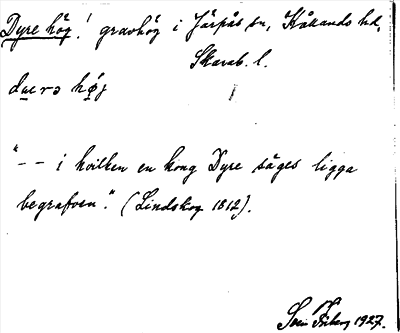 Dyre hög! gravhög i Järpås sn, Kållands hd,
Skarab. l.
"-- i hvilken en kong Dyre säges ligga
begrafven." (Lindskog 1812).
1927.